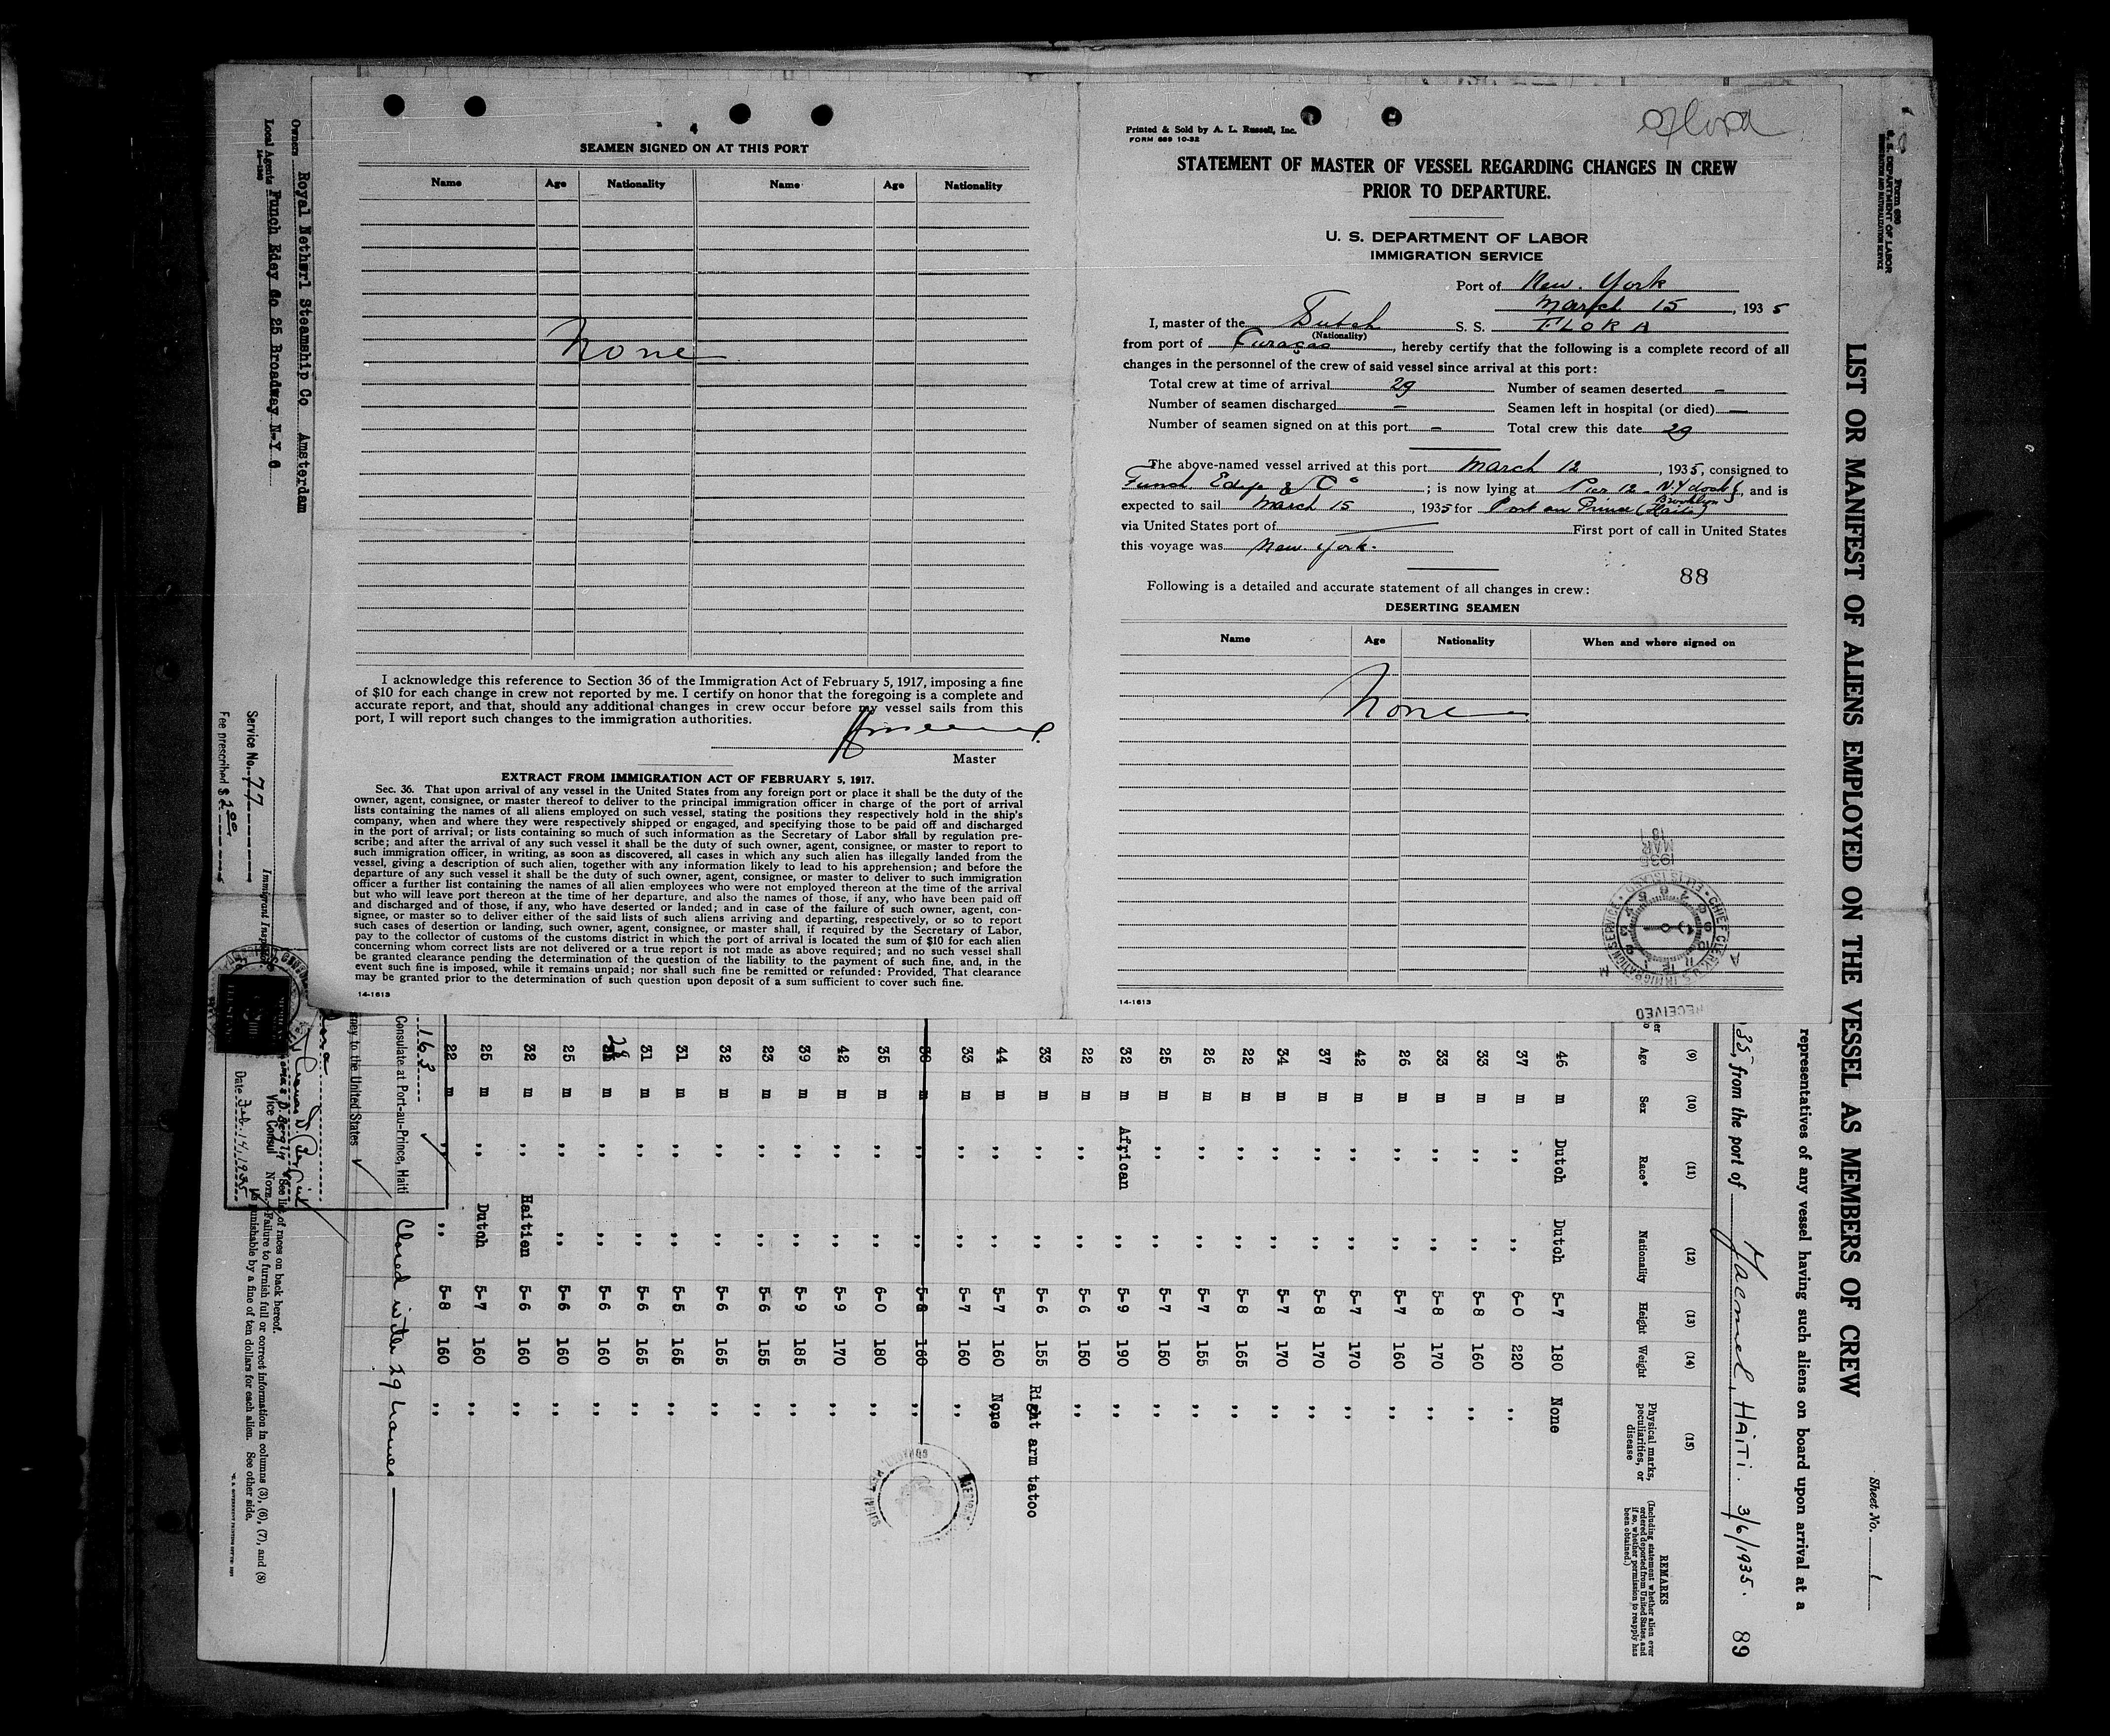 SEAMEN SIGNED ON AT THIS PORT
Name Age Nationality Name Age Nationality
None
I acknowledge this reference to Section 36 of the Immigration Act of February 5, 1917, imposing a fine
of $10 for each change in crew not reported by me. I certify on honor that the foregoing is a complete and
accurate report, and that, should any additional changes in crew occur before my vessel sails from this
port, I will report such changes to the immigration authorities.
Master
EXTRACT FROM IMMIGRATION ACT OF FEBRUARY 5, 1917.
Sec. 36. That upon arrival of any vessel in the United States from any foreign port or place it shall be the duty of the
owner, agent, consignee, or master thereof to deliver to the principal immigration officer in charge of the port of arrival
lists containing the names of all aliens employed on such vessel, stating the positions they respectively hold in the ship's
company, when and where they were respectively shipped or engaged, and specifying those to be paid off and discharged
in the port of arrival; or lists containing so much of such information as the Secretary of Labor shall by regulation pre-
scribe; and after the arrival of any such vessel it shall be the duty of such owner, agent, consignee, or master to report to
such immigration officer, in writing, as soon as discovered, all cases in which any such alien has illegally landed from the
vessel, giving a description of such alien, together with any information likely to lead to his apprehension; and before the
departure of any such vessel it shall be the duty of such owner, agent, consignee, or master to deliver to such immigration
officer a further list containing the names of all alien employees who were not employed thereon at the time of the arrival
but who will leave port thereon at the time of her departure, and also the names of those, if any, who have been paid off
and discharged and of those, if any, who have deserted or landed; and in case of the failure of such owner, agent, con-
signee, or master so to deliver either of the said lists of such aliens arriving and departing, respectively, or so to report
such cases of desertion or landing, such owner, agent, consignee, or master shall, if required by the Secretary of Labor,
pay to the collector of customs of the customs district in which the port of arrival is located the sum of $10 for each alien
concerning whom correct lists are not delivered or a true report is not made as above required; and no such vessel shall
be granted clearance pending the determination of the question of the liability to the payment of such fine, and, in the
event such fine is imposed, while it remains unpaid; nor shall such fine be remitted or refunded: Provided, That clearance
may be granted prior to the determination of such question upon deposit of a sum sufficient to cover such fine.
14-1613
Flora
Printed & Sold by A. L. Russell, Inc.
FORM 689 10-32
STATEMENT OF MASTER OF VESSEL REGARDING CHANGES IN CREW
PRIOR TO DEPARTURE.
U. S. DEPARTMENT OF LABOR
IMMIGRATION SERVICE
Port of New. York
March 15, 1935
I, master of the Dutch S. S. FLORA
(Nationality)
from port of Curaçao, hereby certify that the following is a complete record of all
changes in the personnel of the crew of said vessel since arrival at this port:
Total crew at time of arrival 29 Number of seamen deserted –
Number of seamen discharged – Seamen left in hospital (or died) –
Number of seamen signed on at this port – Total crew this date 29
The above-named vessel arrived at this port March 12, 1935, consigned to
Funch Edye & Co; is now lying at Pier 12 - N.Y docks, and is
Brooklyn
expected to sail March 15, 1935 for Port au Prince (Haiti)
via United States port of First port of call in United States
this voyage was New York.
88
Following is a detailed and accurate statement of all changes in crew:
DESERTING SEAMEN
Name Age Nationality When and where signed on
None
1935
MAR 13
CHIEF CLERK, U.S. IMMIGRATION SERVICE
ELLIS ISLAND
RECEIVED
14-1613
Form 689
U. S. DEPARTMENT OF LABOR
IMMIGRATION AND NATURALIZATION SERVICE
Sheet No. 1
LIST OR MANIFEST OF ALIENS EMPLOYED ON THE VESSEL AS MEMBERS OF CREW
representatives of any vessel having such aliens on board upon arrival at a
35, from the port of Jacmel, HAITI. 3/6/1935. 89
(9) (10) (11) (12) (13) (14) (15)
Age Sex Race* Nationality Height Weight Physical marks, peculiarities, or disease
REMARKS
(Including statement whether alien ever
ordered deported from United States, and
if so, whether permission to reapply has
been obtained.)
46 m Dutch Dutch 5-7 180 None
37 m ,, ,, 6-0 220 ,,
33 m ,, ,, 5-8 160 ,,
33 m ,, ,, 5-8 170 ,,
26 m ,, ,, 5-7 160 ,,
42 m ,, ,, 5-7 170 ,,
37 m ,, ,, 5-8 170 ,,
34 m ,, ,, 5-7 170 ,,
22 m ,, ,, 5-8 165 ,,
26 m ,, ,, 5-7 155 ,,
25 m ,, ,, 5-7 150 ,,
32 m African ,, 5-9 190 ,,
22 m ,, ,, 5-6 150 ,,
33 m ,, ,, 5-6 155 Right arm tatoo
44 m ,, ,, 5-7 160 None
33 m ,, ,, 5-7 160 ,,
m ,, ,, 160 ,,
35 m ,, ,, 6-0 180 ,,
42 m ,, ,, 5-9 170 ,,
39 m ,, ,, 5-9 185 ,,
23 m ,, ,, 5-6 155 ,,
32 m ,, ,, 5-6 165 ,,
31 m ,, ,, 5-5 165 ,,
31 m ,, ,, 5-6 165 ,,
28 m ,, ,, 5-6 160 ,,
25 m ,, ,, 5-6 160 ,,
32 m ,, Haitien 5-6 160 ,,
25 m ,, Dutch 5-7 160 ,,
22 m ,, ,, 5-8 160 ,,
163
Closed with 29 names
Consulate at Port-au-Prince, Haiti
ney to the United States
Owners Royal Nethwrl Steamship Co Amsterdam
Local Agents Funch Edey Co 25 Broadway N-Y C
14-1240
Immigrant Inspector
Service No. 77
Fee prescribed $ 2.00
Vice Consul
Date Feb. 14, 1935
See list of races on back hereof.
NOTE.—Failure to furnish full or correct information in columns (3), (6), (7), and (8)
is punishable by a fine of ten dollars for each alien. See other side.